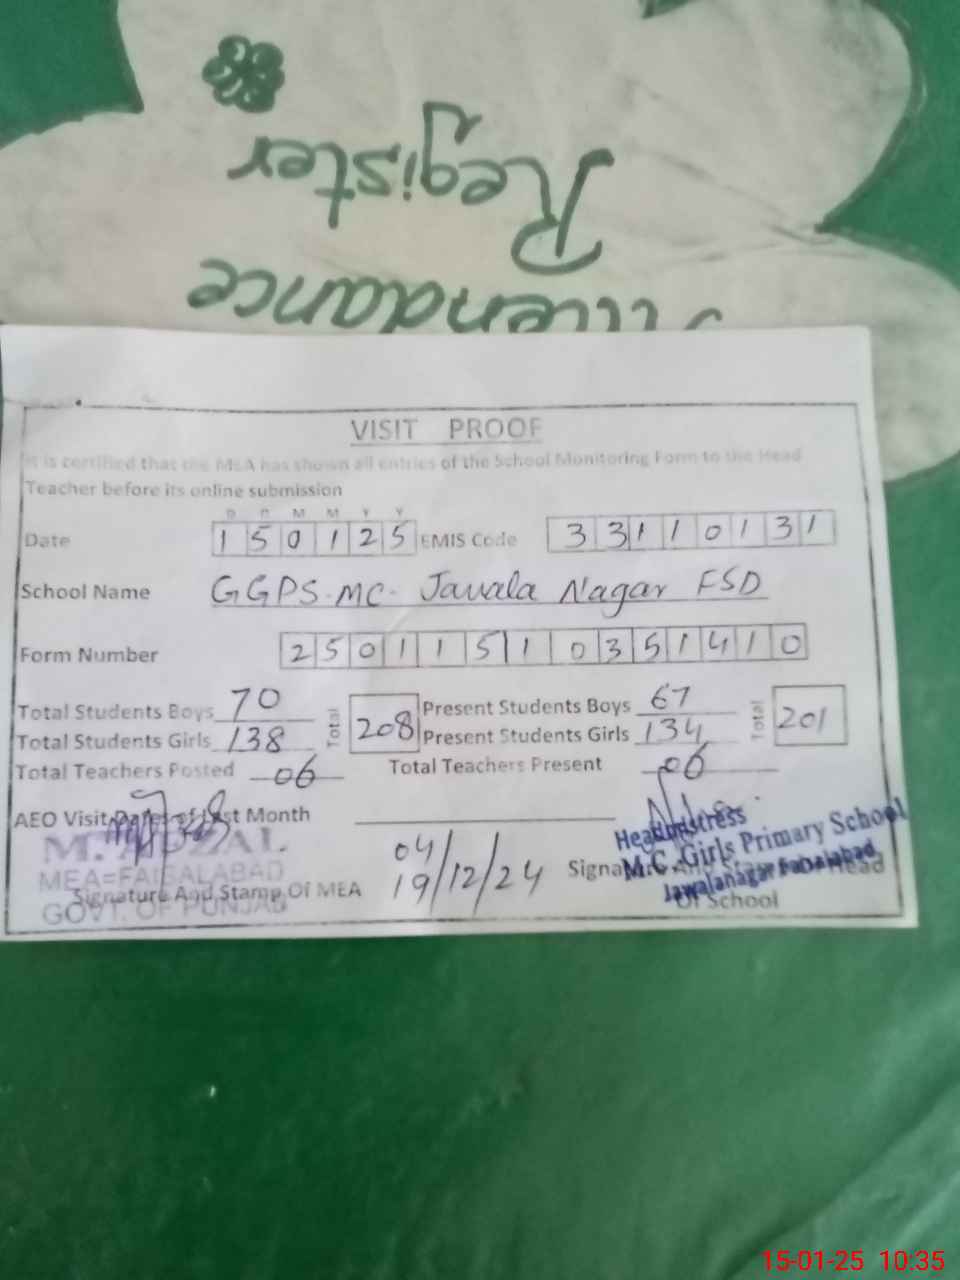 Attendance
Register
VISIT PROOF
It is certified that the MEA has shown all entries of the School Monitoring Form to the Head
Teacher before its online submission
D D M M Y Y
Date 150125 EMIS Code 33110131
School Name GGPS.MC. Jawala Nagar FSD
Form Number 25011510351410
Total Students Boys 70 Total 208 Present Students Boys 67 Total 201
Total Students Girls 138 Present Students Girls 134
Total Teachers Posted 06 Total Teachers Present 06
AEO Visit Dates of Last Month
04/19/12/24
M. AFZAL
MEA=FAISALABAD
GOVT. OF PUNJAB
Signature And Stamp Of MEA
Headmistress
M.C. Girls Primary School
Jawalanagar Faisalabad
Signature And Stamp Of Head
Of School
15-01-25 10:35